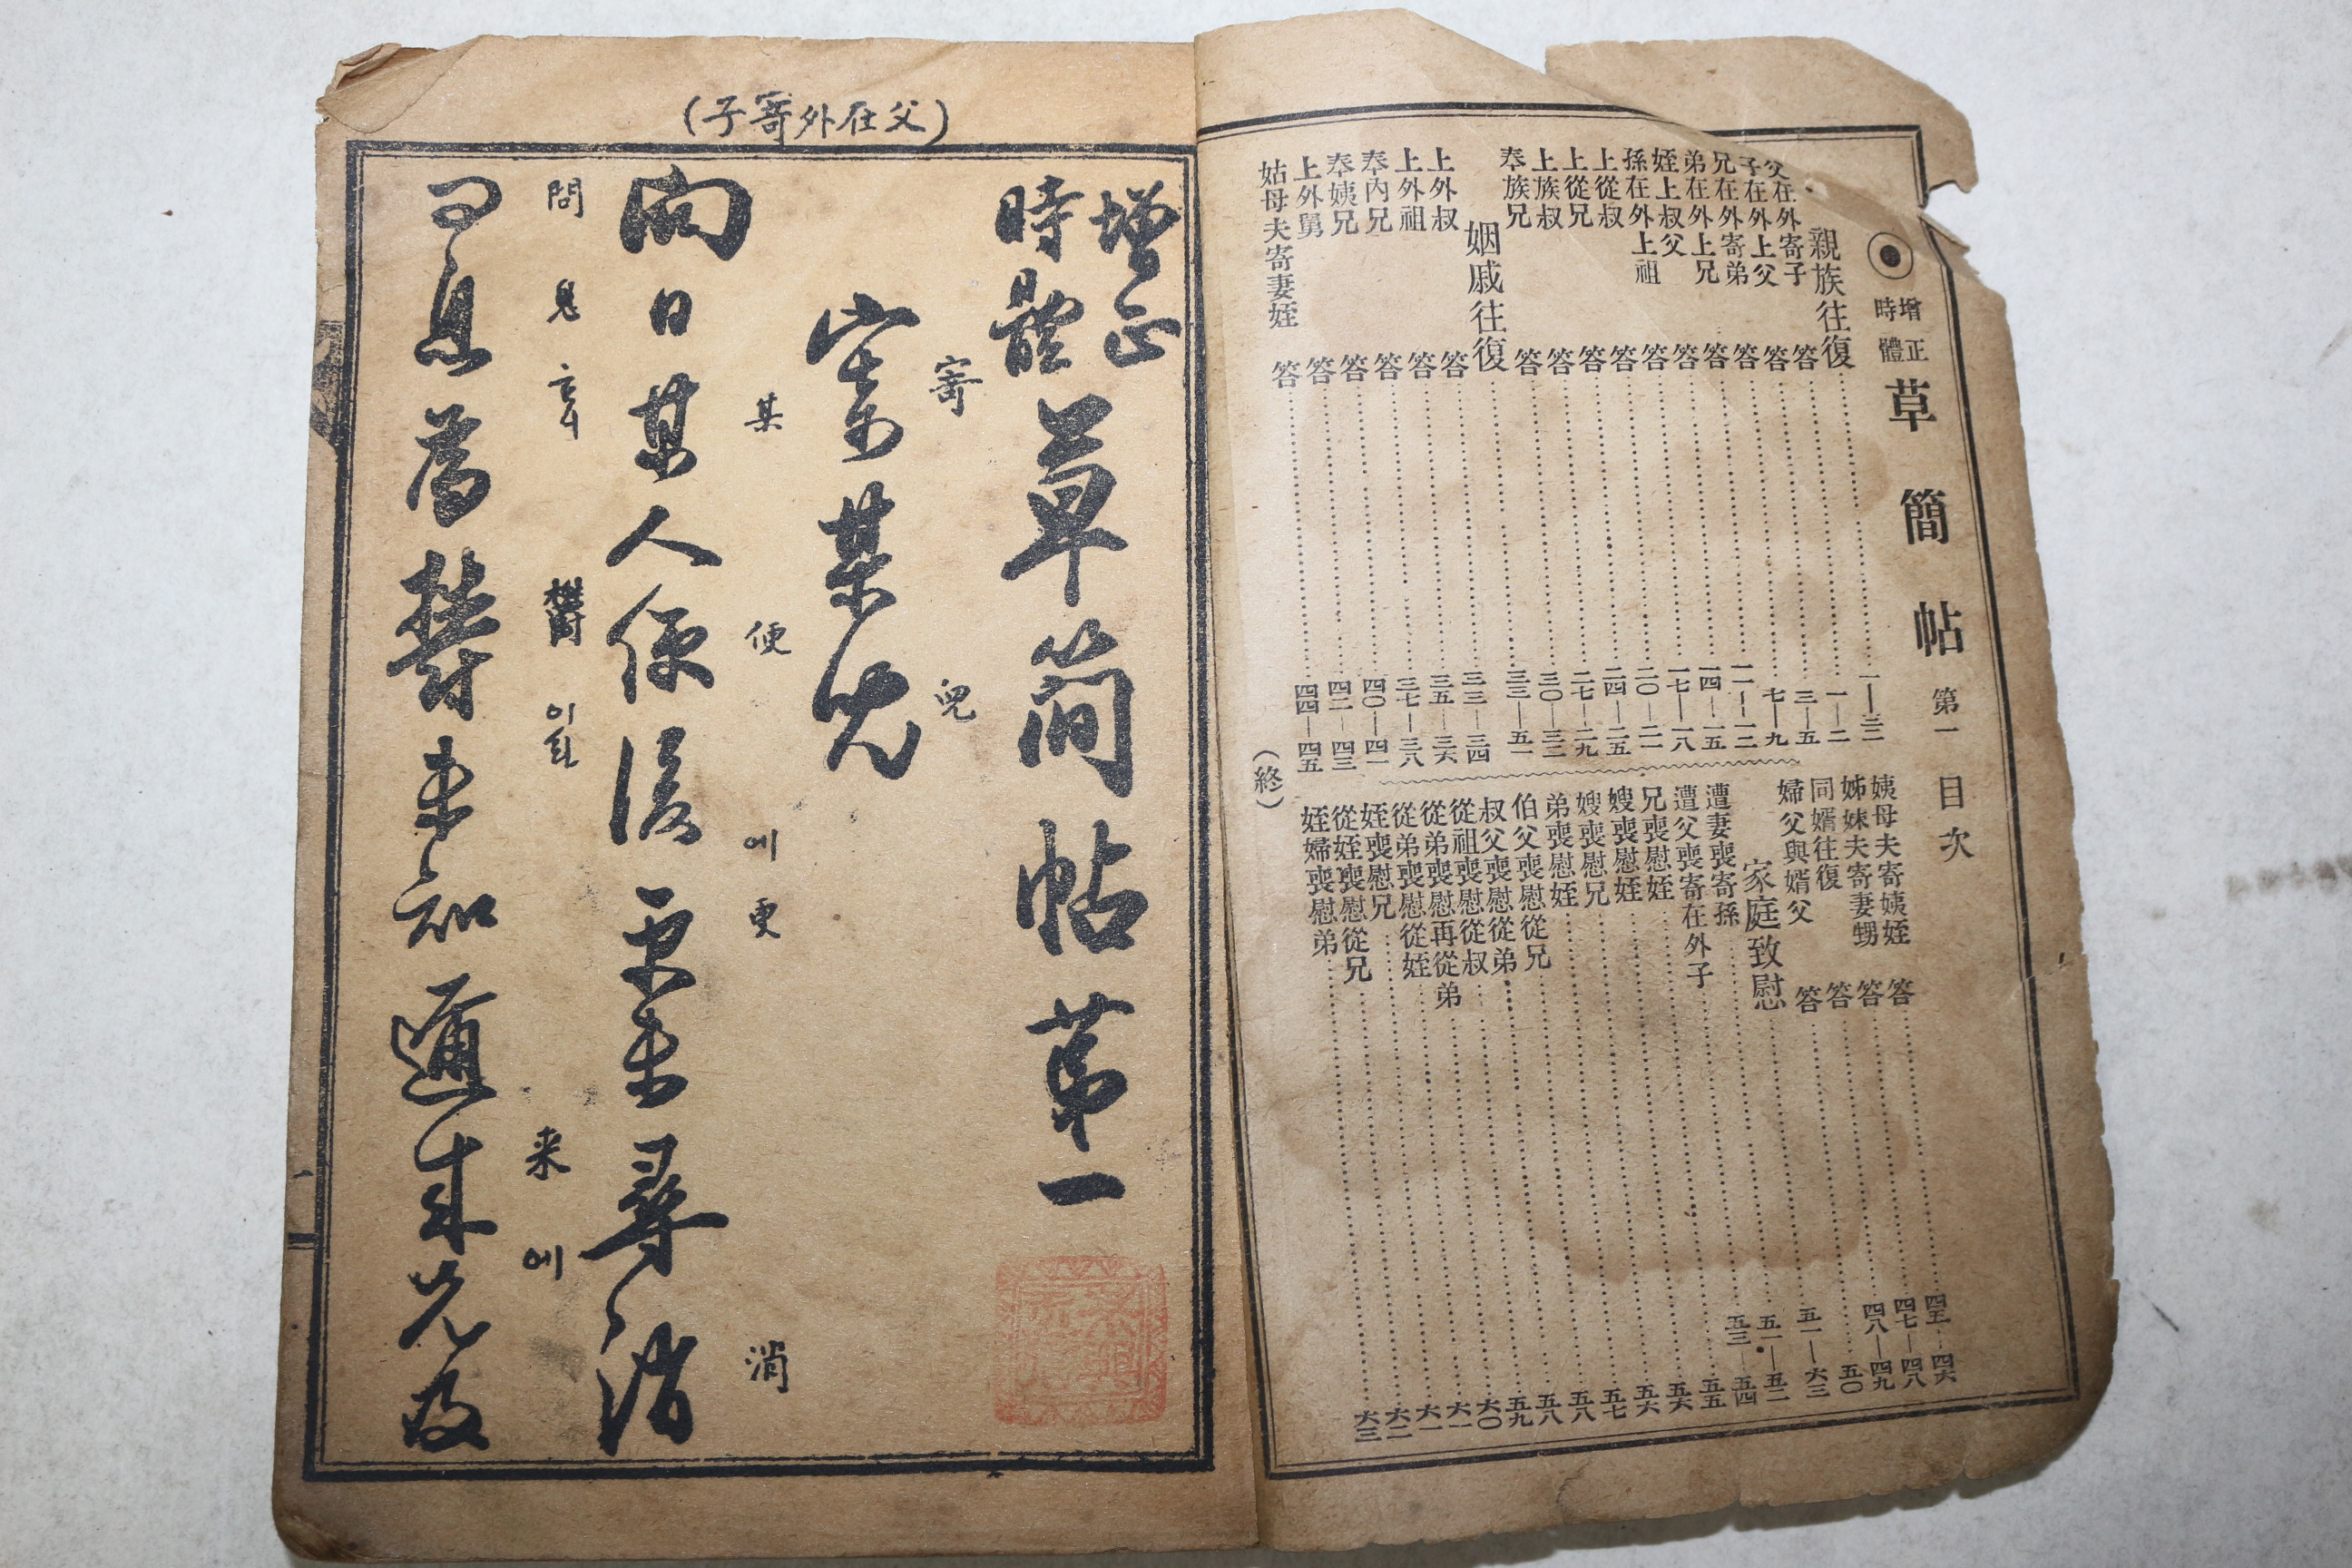 增正
時體
草簡帖 第一 目次
親族往復 一—三二
父在外寄子 答 一—二
子在外上父 答 三—五
兄在外寄弟 答 七—九
弟在外上兄 答 一一—一二
姪上叔父 答 一四—一五
孫在外上祖 答 一七—一八
上從叔 答 二〇—二一
上從兄 答 二四—二五
上族叔 答 二七—二九
奉族兄 答 三〇—三二
姻戚往復 三三—五一
上外叔 答 三三—三四
上外祖 答 三五—三六
奉內兄 答 三七—三八
奉姨兄 答 四〇—四一
上外舅 答 四二—四三
姑母夫寄妻姪 答 四四—四五
姨母夫寄姨姪 答 四五—四六
姊妹夫寄妻甥 答 四七—四八
同婿往復 答 四八—四九
婦父與婿父 答 五〇
家庭致慰 五一—六三
遭妻喪寄孫 五一—五二
遭父喪寄在外子 五三—五四
兄喪慰姪 五五
嫂喪慰姪 五六
嫂喪慰兄 五六
弟喪慰姪 五七
伯父喪慰從兄 五八
叔父喪慰從弟 五八
從祖喪慰從叔 五九
從弟喪慰再從弟 六〇
從弟喪慰從姪 六一
姪喪慰兄 六一
從姪喪慰從兄 六二
姪婦喪慰弟 六三
(終)
(父在外寄子)
增正
時體
草簡帖第一
寄 兒
寄某兒
某 便 에 更 消
向日某人便後更未尋消
問 見 鬱 이되 来 에
息爲鬱未知邇來兄母